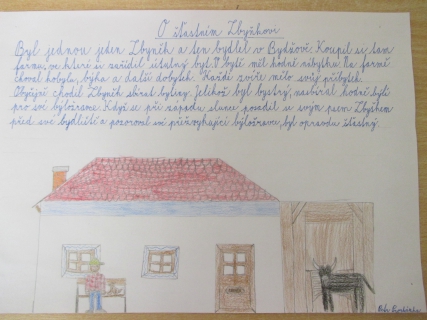 O šťastném Zbyňkovi
Byl jednou jeden Zbyněk a ten bydlel v Bydžově. Koupil si tam
farmu, ve které si zařídil útulný byt. V bytě měl hodně nábytku. Na farmě
choval kobylu, býka a další dobytek. Každé zvíře mělo svůj příbytek.
Obyčejně chodil Zbyněk sbírat byliny. Jelikož byl bystrý, nasbíral hodně býlí
pro své býložravce. Když se při západu slunce posadil se svým psem Zbyškem
před své bydliště a pozoroval své přežvykující býložravce, byl opravdu šťastný.